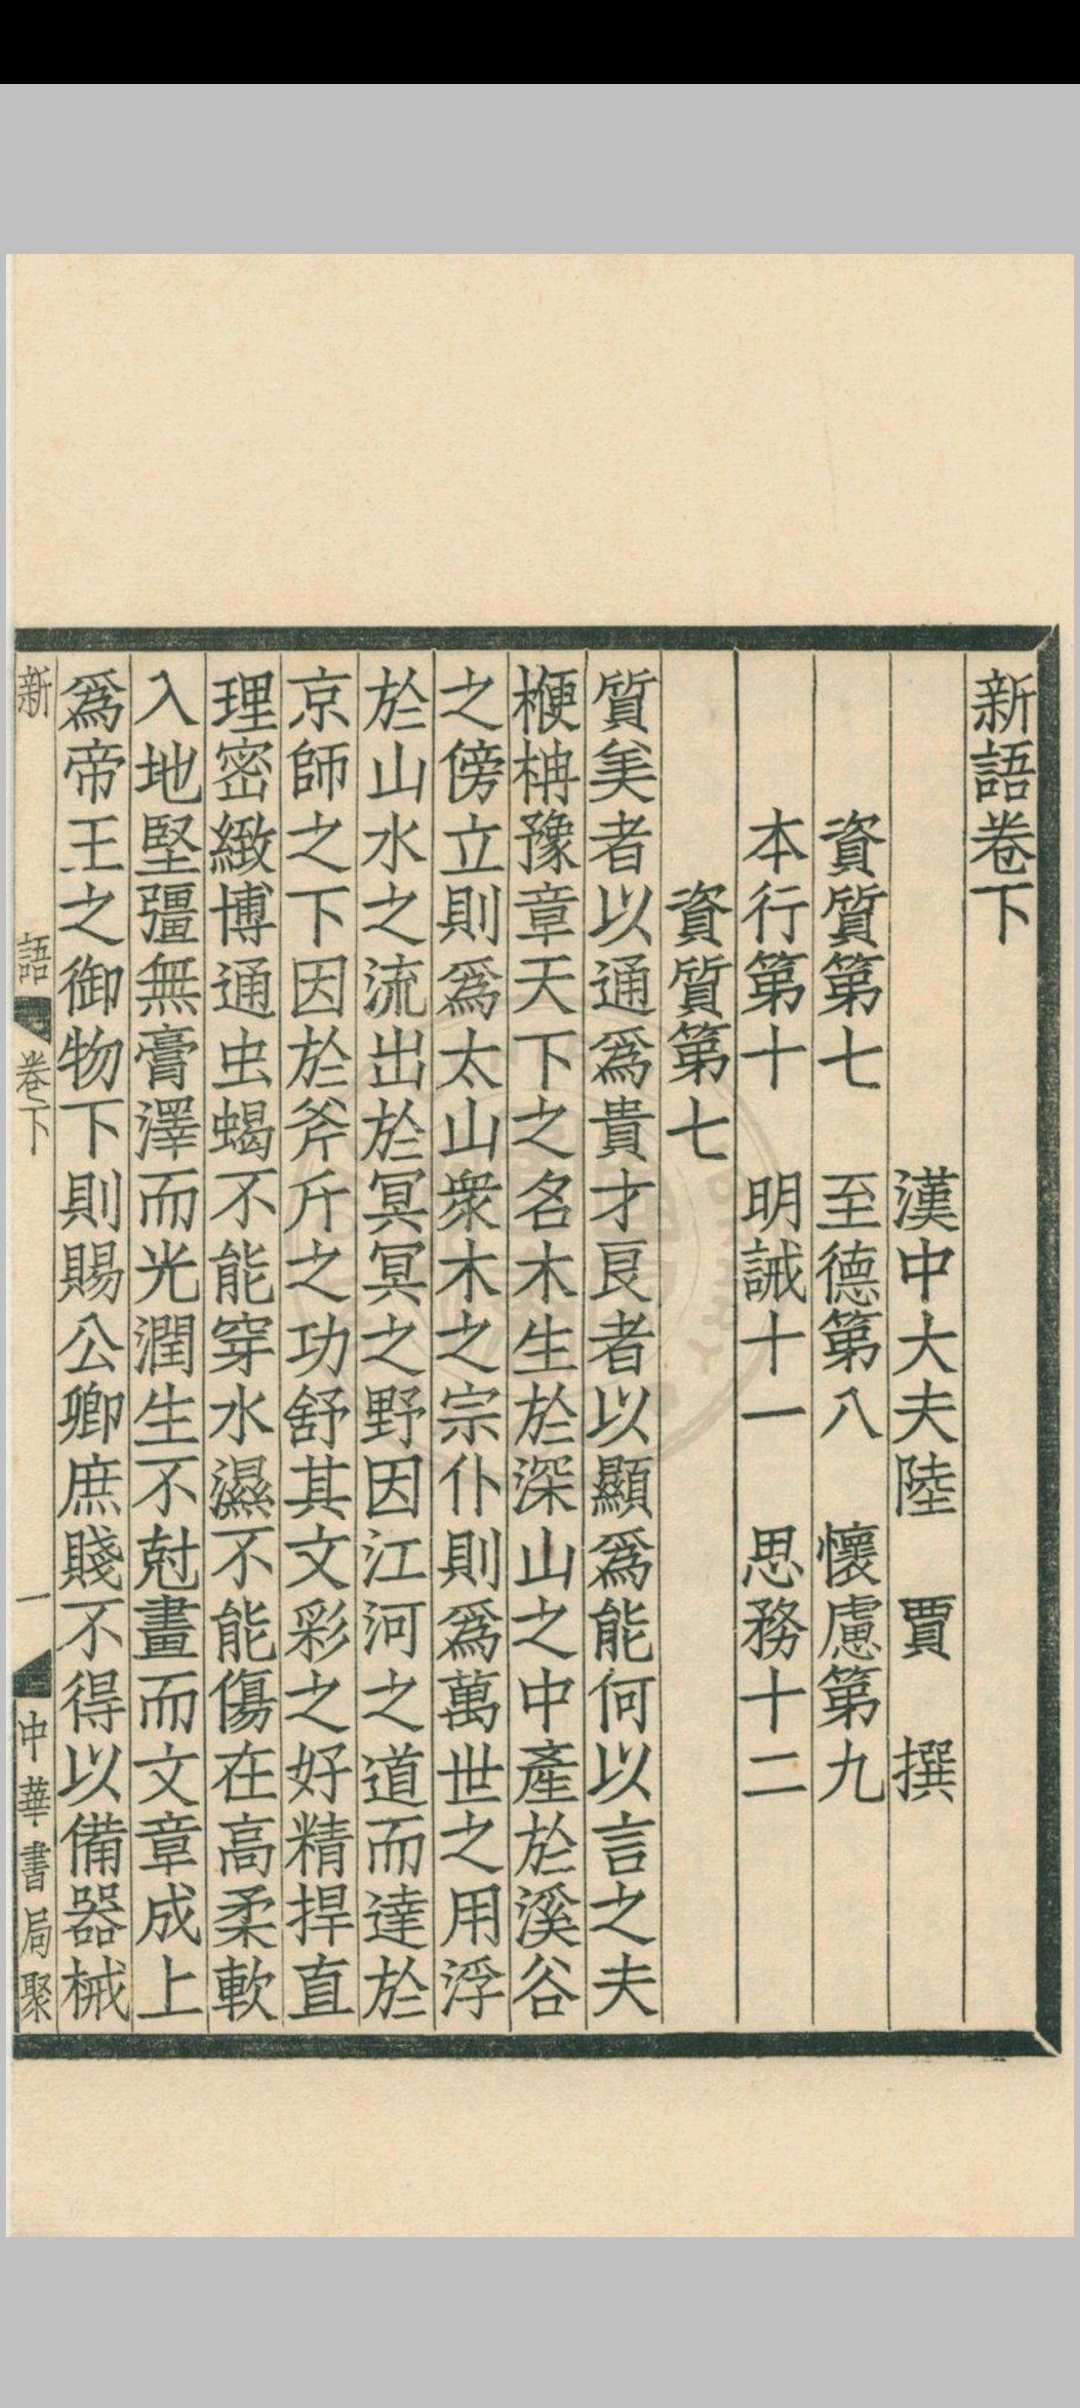 新語卷下
漢中大夫陸 賈 撰
資質第七 至德第八 懷慮第九
本行第十 明誡十一 思務十二
資質第七
質美者以通爲貴才良者以顯爲能何以言之夫
楩柟豫章天下之名木生於深山之中產於溪谷
之傍立則爲太山衆木之宗仆則爲萬世之用浮
於山水之流出於冥冥之野因江河之道而達於
京師之下因於斧斤之功舒其文彩之好精捍直
理密緻博通虫蝎不能穿水濕不能傷在高柔軟
入地堅彊無膏澤而光潤生不尅畫而文章成上
爲帝王之御物下則賜公卿庶賤不得以備器械
新 語 卷下 一 中華書局聚